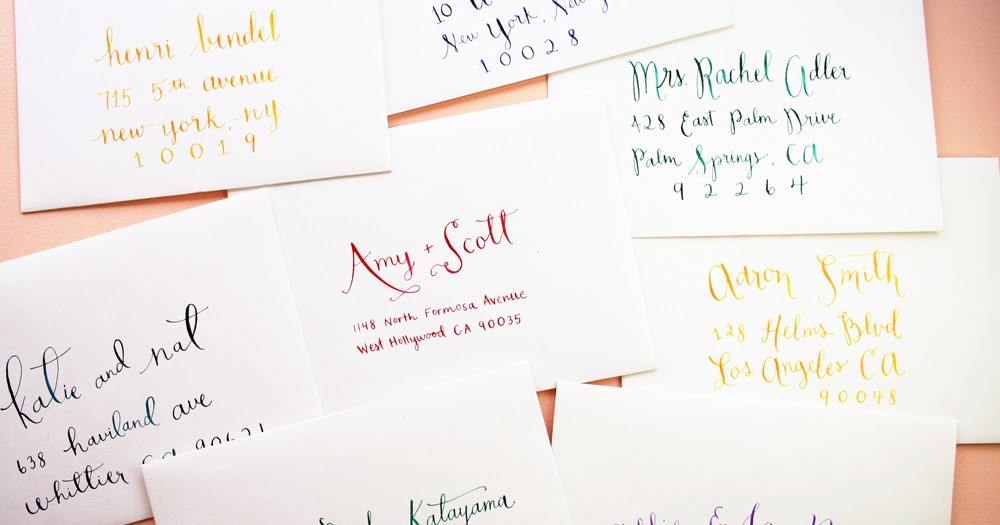 henri bendel
715 5th avenue
new york, ny
10019
10
New York, New
10028
Mrs. Rachel Adler
428 East Palm Drive
Palm Springs, CA
92264
Amy + Scott
1148 North Formosa Avenue
West Hollywood CA 90035
Aaron Smith
128 Helms Blvd
Los Angeles CA
90048
katie and nat
638 haviland ave
whittier ca
Katayama